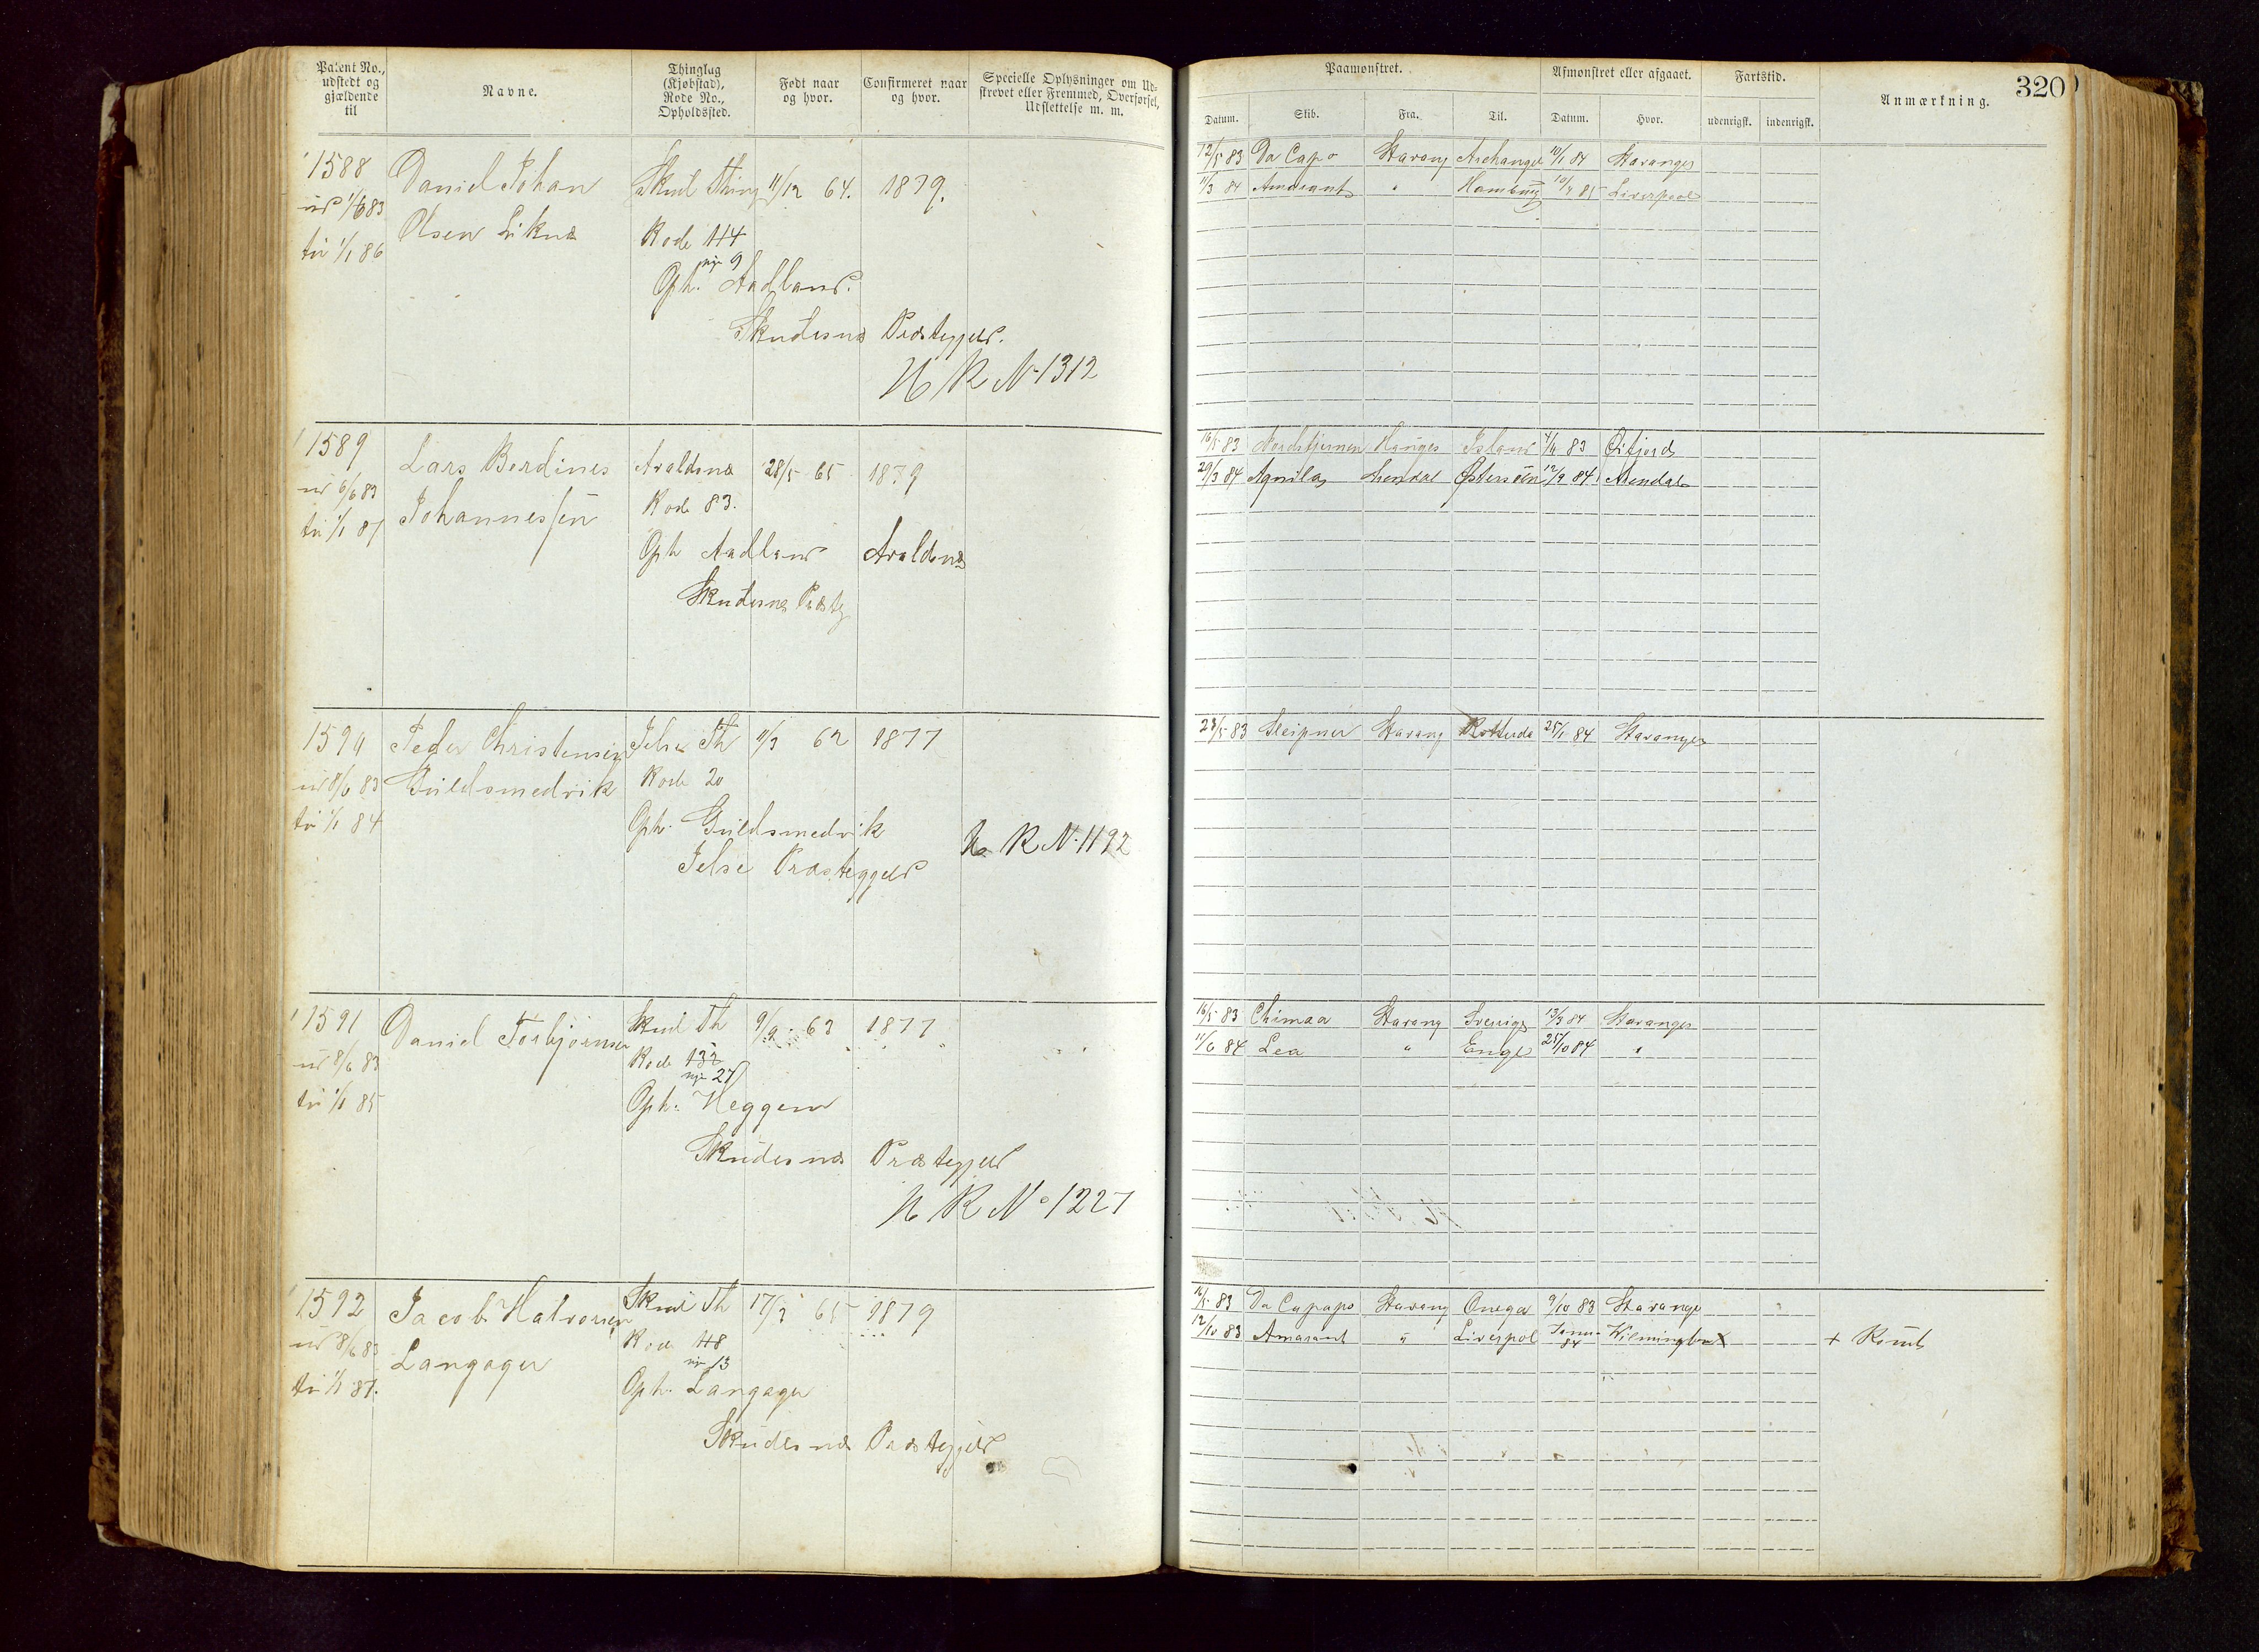 Patent No., udstedt og gjældende til
Navne.
Thinglag (Kjøbstad), Rode No., Opholdssted.
Født naar og hvor.
Confirmeret naar og hvor.
Specielle Oplysninger om Udstrevet eller Fremmed, Overførsel, Udslettelse m. m.
Paamønstret.
Afmønstret eller afgaaet.
Fartstid.
Anmærkning.
320
Datum. Skib. Fra. Til. Datum. Hvor. udenrigsk. indenrigsk.
1588 Daniel Johan Skud Thing 11/12 64. 1879.
ud 1/6 83 Olsen Liknæ Rode 114
til 1/1 86 nye 9
Oph. Aadland.
Skudesnæs Præstegjeld.
N R No 1312
12/5 83 Da Capo Stavang Archangel 10/1 84 Stavanger
11/3 84 Amarant " Hamburg 10/7 85 Liverpool
1589 Lars Berdines Avaldsnæ 28/5 65 1879
ud 6/6 83 Johannessen Rode 83.
til 1/1 87 Oph Aadland Avaldsnæ
Skudesnæs Præstg
16/5 83 Nordstjernen Hauges Island 4/9 83 Øifjord
29/3 84 Aquila Arendal Østersøen 12/9 84 Arendal
1590 Peder Christensen Jelse Th 11/3 62 1877
ud 8/6 83 Guldsmedvik Rode 20
til 1/1 84 Oph. Guldsmedvik
Jelse Præstegjeld
N R No. 1192
23/5 83 Sleipner Stavang Rotterda 25/1 84 Stavanger
1591 Daniel Torbjørnsen Skud Th 9/9 63 1877
ud 8/6 83 Rode 132
nye 27
til 1/1 85 Oph. Heggem
Skudesnæs Præstegjeld
N R No 1227
16/5 83 Chimaa Stavang Sverrige 13/3 84 Stavanger
11/6 84 Lea " Engl 25/10 84 "
1592 Jacob Halvorsen Skud Th 17/3 65 1879
ud 8/6 83 Langager Rode 118
nye 13
til 1/1 87. Oph. Langager
Skudesnæs Præstegjeld
16/5 83 Da Capapo Stavang Onega 9/10 83 Stavange
12/10 83 Amarant " Liverpol Janu- 84 Wilmington X + Rømt